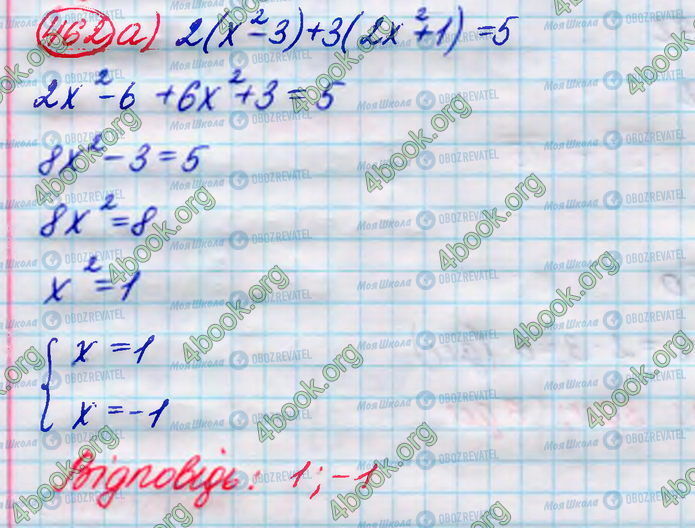 462 а) 2(x²-3)+3(2x²+1)=5
2x²-6+6x²+3=5
8x²-3=5
8x²=8
x²=1
{ x=1
x=-1
Відповідь: 1; -1
4book.org
МояШкола OBOZREVATEL